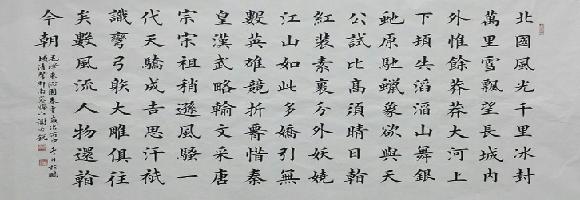 北國風光千里冰封
萬里雪飄望長城內
外惟餘莽莽大河上
下頓失滔滔山舞銀
蛇原馳蠟象欲與天
公試比高須晴日看
紅裝素裹分外妖嬈
江山如此多嬌引無
數英雄競折腰惜秦
皇漢武略輸文采唐
宗宋祖稍遜風騷一
代天驕成吉思汗祗
識彎弓射大雕俱往
矣數風流人物還看
今朝